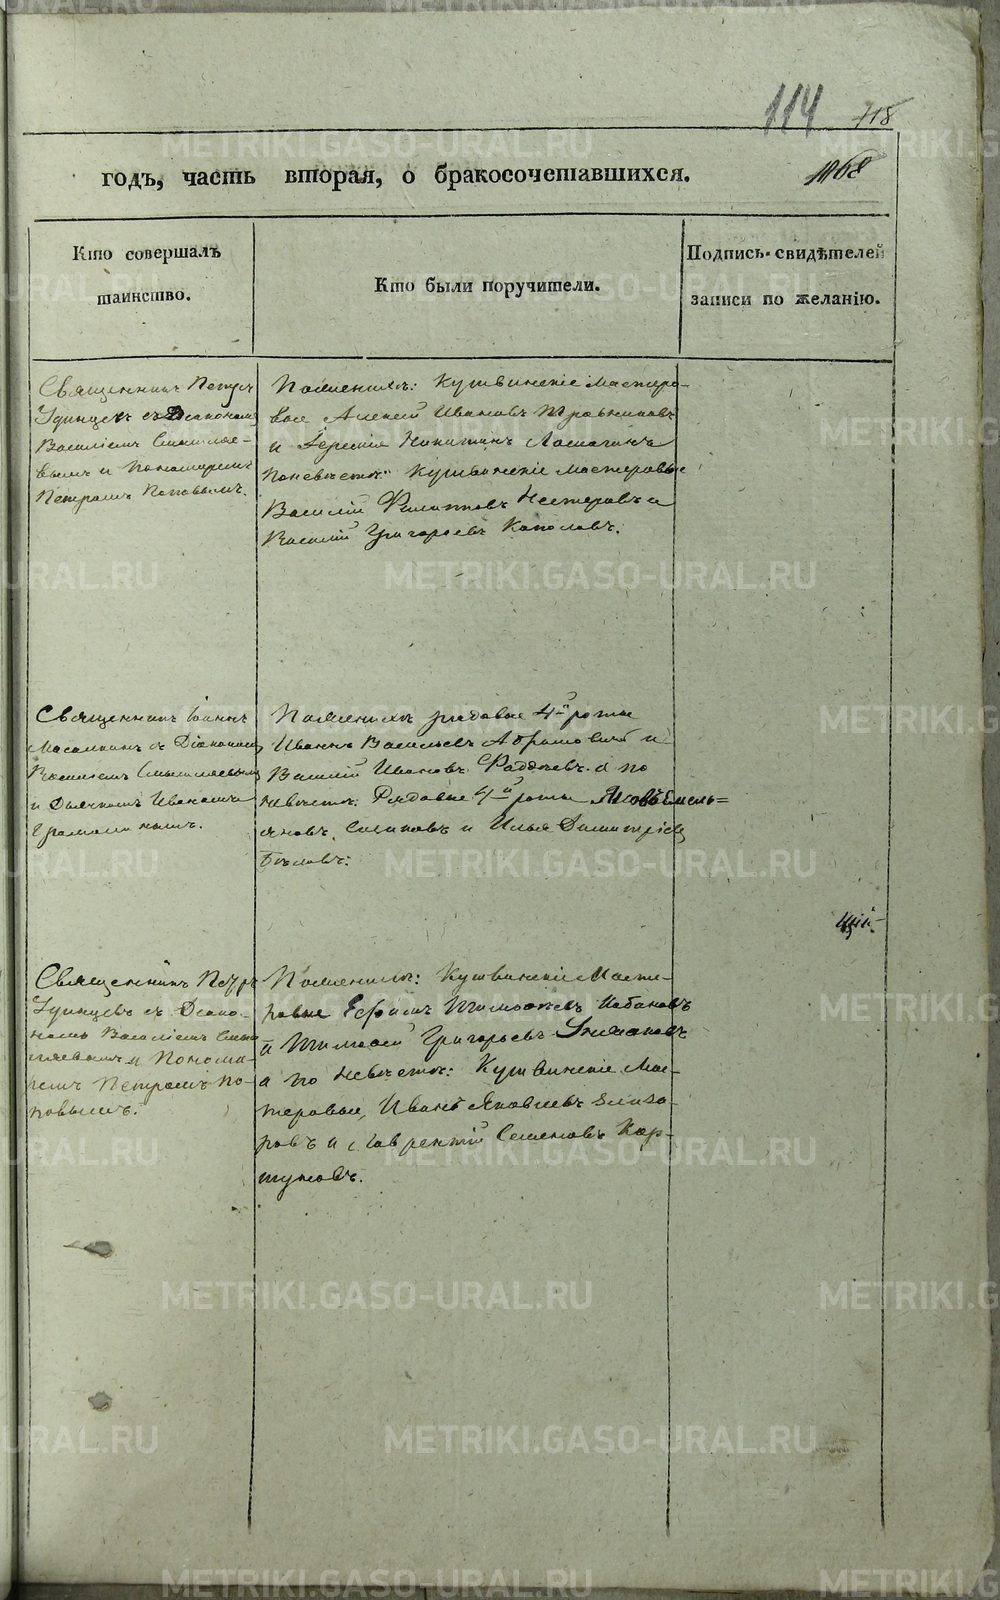 114 118
годъ, часть вторая, о бракосочетавшихся.
1168
Кто совершалъ
таинство.
Кто были поручители.
Подпись свидѣтелей
записи по желанію.
Священникъ Петръ
Удинцевъ съ Діакономъ
Василіемъ
вымъ и Пономаремъ
Петромъ Поповымъ.
По женихѣ: Кушвинскіе мастеро-
вые Алексей Ивановъ Травниковъ
и Никитинъ Ломагинъ
по невѣстѣ: Кушвинскіе мастеровые
Василій Филиповъ Нестеровъ и
Василій Григорьевъ
Священникъ Іоаннъ
съ Діакономъ
Василіемъ Смышляевымъ
и Дьячкомъ Иваномъ
По женихѣ рядовые 4й роты
Иванъ Васильевъ Абрамовичъ и
Василій Ивановъ а по
невѣстѣ: Рядовые 4й роты Емель-
яновъ и Илья Димитріевъ
Бѣловъ:
Священникъ Петръ
Удинцевъ съ Діако-
номъ Василіемъ Смыш
ляевымъ и Понома-
ремъ Петромъ По-
повымъ.
По женихѣ: Кушвинскіе Масте-
ровые Ефимъ Тимофѣевъ Кабановъ
и Тимофей Григорьевъ
а по невѣстѣ: Кушвинскіе Мас-
теровые, Иванъ Яковлевъ Елиза-
ровъ и Лаврентій Семеновъ Кор-
туновъ.
METRIKI.GASO-URAL.RU